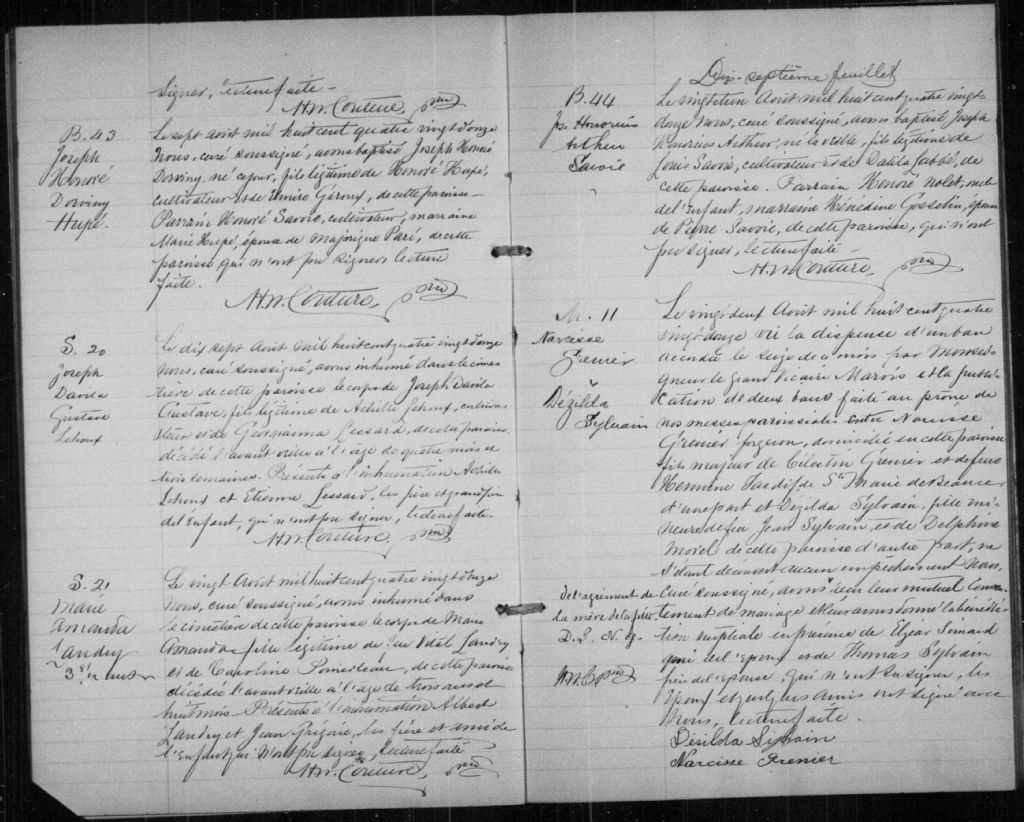 Signer, lecture faite –
H.W. Couture, ptre
B. 43
Joseph
Honoré
Dorviny
Hupé.
Le sept août mil huit cent quatre vingt douze
Nous, curé soussigné, avons baptisé Joseph Honoré
Dorviny, né ce jour, fils légitime de Honoré Hupé,
cultivateur et de Elmire Giroux, de cette paroisse –
Parrain Honoré Savoie, cultivateur, marraine
Marie Hupé, épouse de Majorique Paré, de cette
paroisse, qui n'ont pu signer, lecture
faite.
H.W. Couture, ptre
S. 20
Joseph
Davila
Gustave
Lehoux
Le dix sept Août mil huit cent quatre vingt douze
Nous, curé soussigné, avons inhumé dans le cime
tière de cette paroisse le corps de Joseph Davila
Gustave, fils légitime de Achille Lehoux, cultiva
teur et de Georgianna Lessard, de cette paroisse,
décédé l'avant veille à l'âge de quatre mois et
trois semaines. Présents à l'inhumation Achille
Lehoux et Etienne Lessard, les père et grand père
de l'Enfant, qui n'ont pu signer, lecture faite.
H.W. Couture, ptre
S. 21
Marie
Amanda
Landry
3 8/12 ans
Le vingt Août mil huit cent quatre vingt douze
Nous, curé soussigné, avons inhumé dans
le cimetière de cette paroisse le corps de Marie
Amanda fille légitime de feu Vital Landry
et de Caroline Pomerleau, de cette paroisse
décédée l'avant veille à l'âge de trois ans et
huit mois – Présents à l'inhumation Albert
Landry et Jean Grégoire, les frère et ami de
l'Enfant qui n'ont pu signer, lecture faite –
H.W. Couture, ptre
Dix-septième feuillet
B. 44
Js. Honorius
Arthur
Savoie
Le vingt et un Août mil huit cent quatre vingt-
douze Nous, curé soussigné, avons baptisé Joseph
Honorius Arthur, né la veille, fils légitime de
Louis Savoie, cultivateur et de Dalila Labbé, de
cette paroisse. Parrain Honoré Nolet, oncle
de l'Enfant, marraine Hénédine Gosselin, épouse
de Pierre Savoie, de cette paroisse, qui n'ont
pu signer, lecture faite –
H.W. Couture, ptre
M. 11
Narcisse
Grenier
&
Dézilda
Sylvain
Le vingt deux Août mil huit cent quatre
vingt douze vu la dispense d'un ban
accordée le seize de ce mois par Monsei
gneur le grand Vicaire Marois et la publi
cation de deux bans faite au prône de
nos messes paroissiales Entre Narcisse
Grenier forgeron, domicilié en cette paroisse
fils majeur de Célestin Grenier et de feue
Hermine Tardif, de Ste Marie de Beauce
d'une part et Dézilda Sylvain, fille mi-
neure de feu Jean Sylvain et de Delphine
Morel de cette paroisse d'autre part, ne
s'étant découvert aucun empêchement Nous,
Curé soussigné, avons reçu leur mutuel Consen
tement de mariage et leur avons donné la bénédic
tion nuptiale en présence de Elzéar Simard
ami de l'Epoux et de Thomas Sylvain
frère de l'épouse, qui n'ont su signer, les
Epoux et quelques Amis ont signé avec
Nous, lecture faite.
de l'agrément de
la mère de la fille
H.W.C. ptre
Dézilda Sylvain
Narcisse Grenier